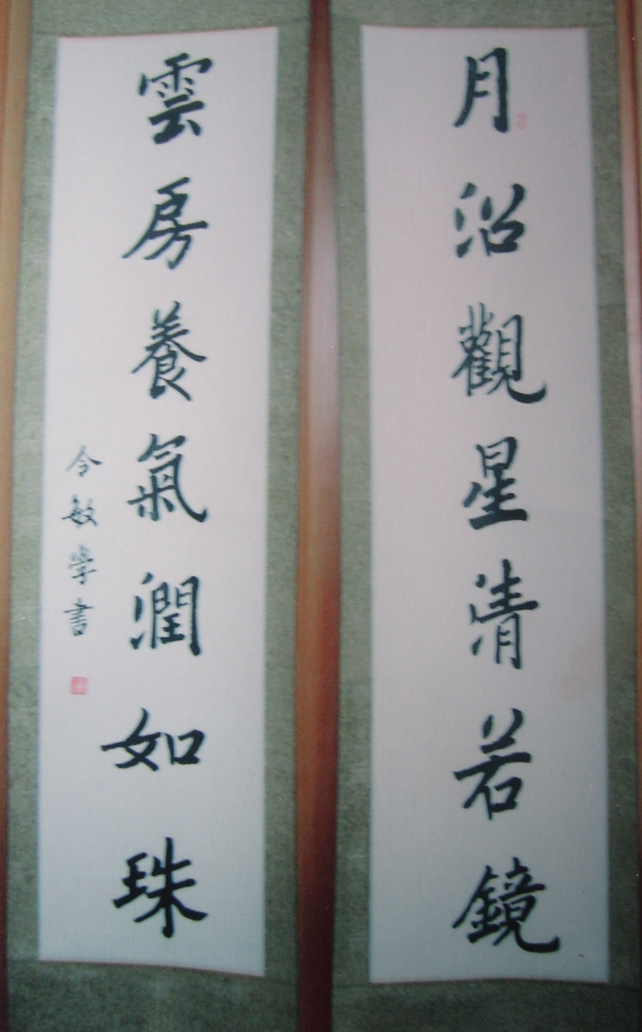 月沼觀星清若鏡
雲房養氣潤如珠
令敏學書